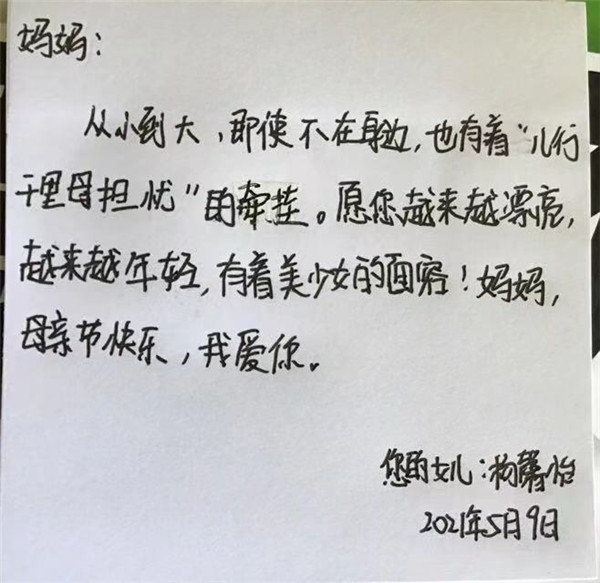 妈妈：
从小到大，即使不在身边，也有着“儿行
千里母担忧”的牵挂。愿您越来越漂亮，
越来越年轻，有着美少女的面容！妈妈，
母亲节快乐，我爱你。
您的女儿：杨馨怡
2021年5月9日